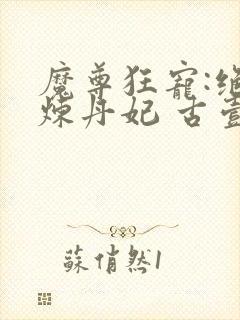 魔尊狂寵:絕
煉丹妃 古壹
蘇俏然1